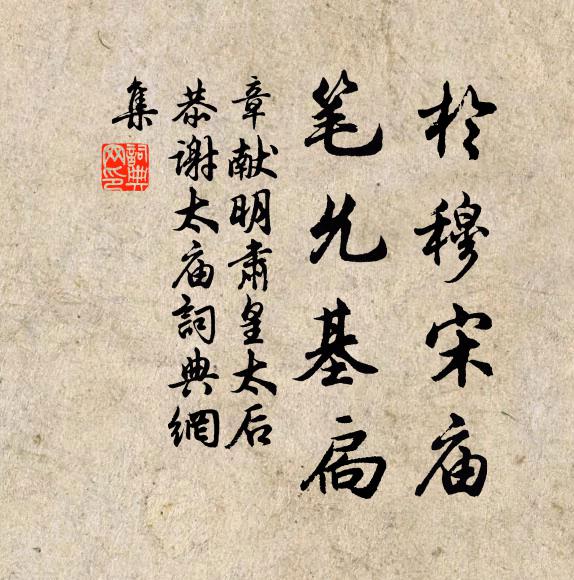 於穆宋庙
笔允基扃
章献明肃皇太后
恭谢太庙詞典網
集
詞典網印